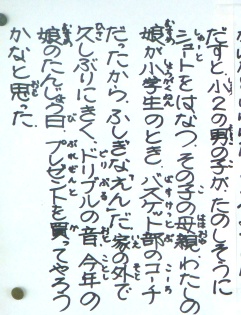 だすと、小2の男の子が、たのしそうに
シュートをはなつ。その子の母親、わたしの
娘が小学生のとき、バスケット部のコーチ
だったから、ふしぎなえんだ。家の外で
久しぶりにきく、ドリブルの音。今年の
娘のたんじょう日、プレゼントを買ってやろう
かなと思った。